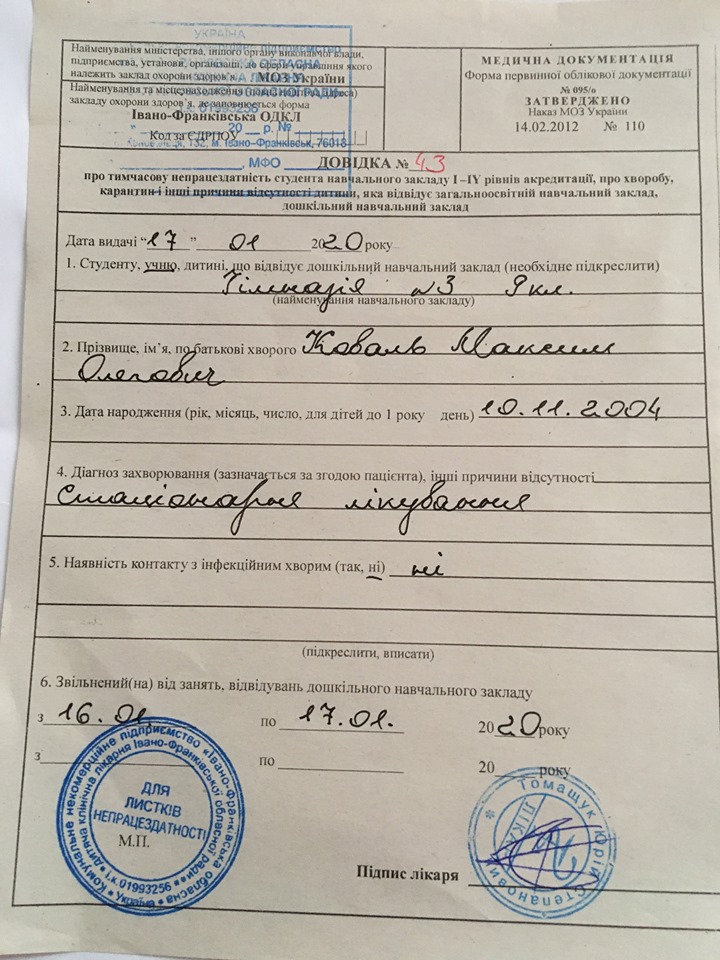 УКРАЇНА
Найменування міністерства, іншого органу виконавчої влади,
підприємства, установи, організації, до сфери управління якого
належить заклад охорони здоров'я МОЗ України
Найменування та місцезнаходження (повна поштова адреса)
закладу охорони здоров'я, де заповнюється форма
Івано-Франківська ОДКЛ
Код за ЄДРПОУ
і.к. 01993256
20 р. №
132, м. Івано-Франківськ, 76018
МФО
МЕДИЧНА ДОКУМЕНТАЦІЯ
Форма первинної облікової документації
№ 095/о
ЗАТВЕРДЖЕНО
Наказ МОЗ України
14.02.2012 № 110
ДОВІДКА № 43
про тимчасову непрацездатність студента навчального закладу I –IY рівнів акредитації, про хворобу,
карантин і інші причини відсутності дитини, яка відвідує загальноосвітній навчальний заклад,
дошкільний навчальний заклад
Дата видачі “17” 01 2020 року
1. Студенту, учню, дитині, що відвідує дошкільний навчальний заклад (необхідне підкреслити)
Гімназія №3 9кл.
(найменування навчального закладу)
2. Прізвище, ім'я, по батькові хворого Коваль Максим
Олегович
3. Дата народження (рік, місяць, число, для дітей до 1 року день) 10.11.2004
4. Діагноз захворювання (зазначається за згодою пацієнта), інші причини відсутності
стаціонарне лікування
5. Наявність контакту з інфекційним хворим (так, ні) ні
(підкреслити, вписати)
6. Звільнений(на) від занять, відвідувань дошкільного навчального закладу
з 16.01. по 17.01. 2020 року
з по 20 року
Комунальне некомерційне підприємство «Івано-Франківська обласна
дитяча клінічна лікарня Івано-Франківської обласної ради»
і.к. 01993256
Україна
ДЛЯ
ЛИСТКІВ
НЕПРАЦЕЗДАТНОСТІ
М.П.
Томащук Юрій Степанович
Підпис лікаря